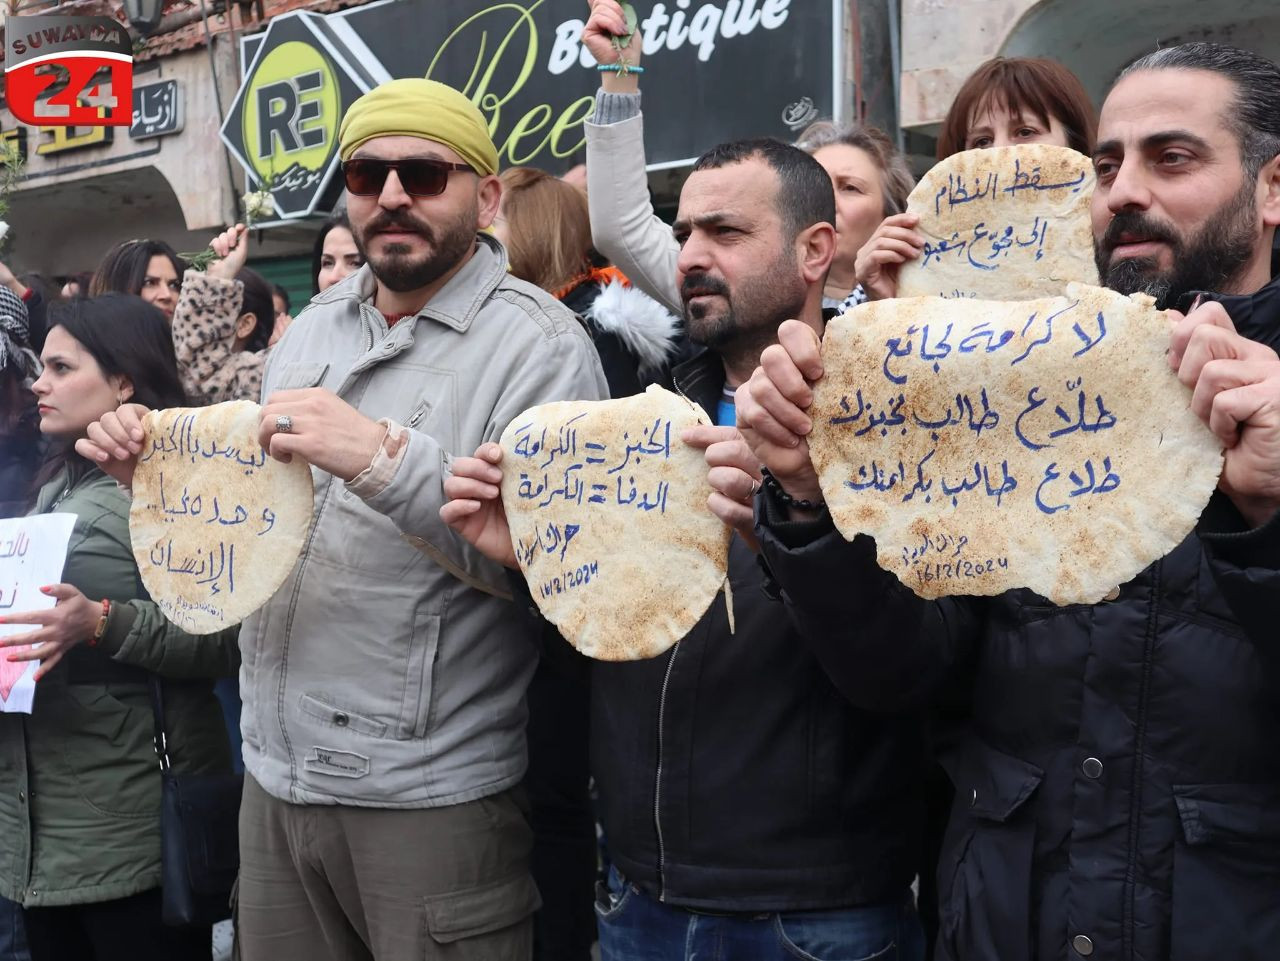 SUWAYDA
24
أزياء
RE
بوتيك
Boutique
Ree
يسقط النظام
إلى مجوّع شعبو
لا كرامة لجائع
طلّاع طالب بخبزك
طلاع طالب بكرامتك
16/2/2024
الخبز = الكرامة
الدفا = الكرامة
حراك السويداء
16/2/2024
ليس بالخبز
وحده يحيا..
الإنسان